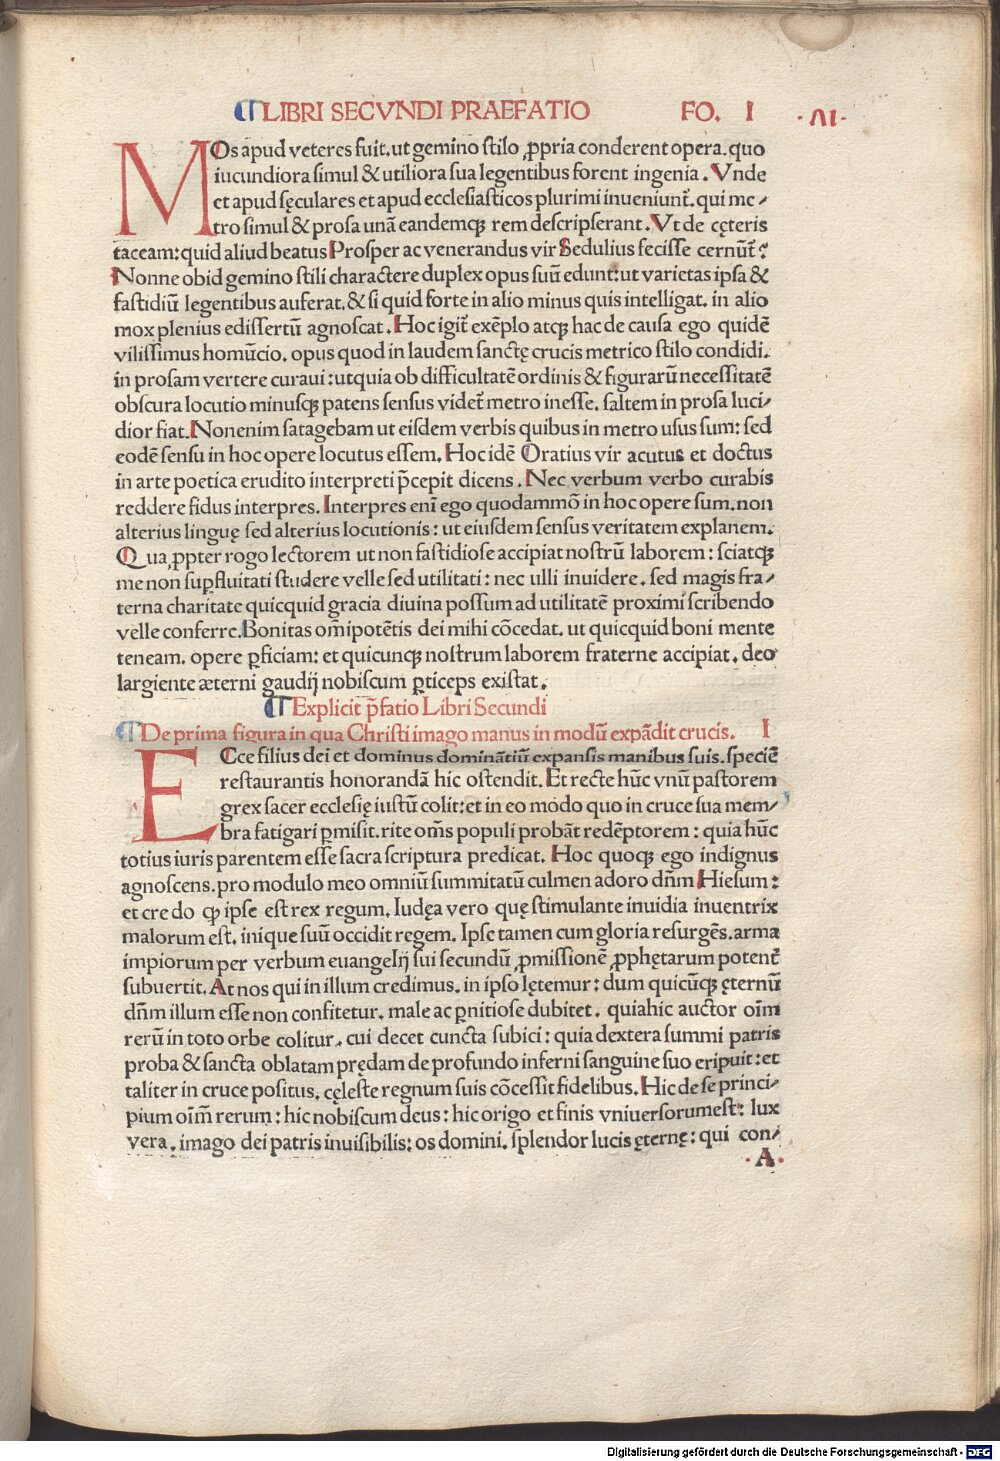 ¶ LIBRI SECVNDI PRAEFATIO FO. I ·VI·
MOs apud veteres fuit. ut gemino stilo ꝓpria conderent opera. quo
iucundiora simul & utiliora sua legentibus forent ingenia. Vnde
et apud sęculares et apud ecclesiasticos plurimi inueniunt̃. qui me⸗
tro simul & prosa unā eandemqꝫ rem descripserant. Vt de cęteris
taceam: quid aliud beatus Prosper ac venerandus vir Sedulius fecisse cernũt̃?
Nonne obid gemino stili charactere duplex opus suũ edunt: ut varietas ipsa &
fastidiũ legentibus auferat. & si quid forte in alio minus quis intelligat. in alio
mox plenius edissertũ agnoscat. Hoc igit̃ exẽplo atqꝫ hac de causa ego quidẽ
vilissimus homũcio. opus quod in laudem sanctę crucis metrico stilo condidi.
in prosam vertere curaui: utquia ob difficultatẽ ordinis & figurarũ necessitatẽ
obscura locutio minusqꝫ patens sensus videt̃ metro inesse. saltem in prosa luci⸗
dior fiat. Nonenim satagebam ut eisdem verbis quibus in metro usus sum: sed
eodẽ sensu in hoc opere locutus essem. Hoc idẽ Oratius vir acutus et doctus
in arte poetica erudito interpreti p̃cepit dicens. Nec verbum verbo curabis
reddere fidus interpres. Interpres eni᷉ ego quodammõ in hoc opere sum. non
alterius linguę sed alterius locutionis: ut eiusdem sensus veritatem explanem.
Qua ꝓpter rogo lectorem ut non fastidiose accipiat nostrũ laborem: sciatqꝫ
me non suꝑfluitati studere velle sed utilitati: nec ulli inuidere. sed magis fra⸗
terna charitate quicquid gracia diuina possum ad utilitatẽ proximi scribendo
velle conferre. Bonitas om̃ipotẽtis dei mihi cõcedat. ut quicquid boni mente
teneam. opere ꝑficiam: et quicunqꝫ nostrum laborem fraterne accipiat. deo
largiente æterni gaudij nobiscum ꝑticeps existat.
¶ Explicit p̃fatio Libri Secundi
¶ De prima figura in qua Christi imago manus in modũ expãdit crucis. I
ECce filius dei et dominus dominãtiũ expansis manibus suis. speciẽ
restaurantis honorandã hic ostendit. Et recte hũc vnũ pastorem
grex sacer ecclesię iustũ colit: et in eo modo quo in cruce sua mem⸗
bra fatigari ꝑmisit. rite om̃s populi probãt redẽptorem: quia hũc
totius iuris parentem esse sacra scriptura predicat. Hoc quoqꝫ ego indignus
agnoscens. pro modulo meo omniũ summitatũ culmen adoro dñm Hiesum:
et cre do qꝫ ipse est rex regum. Iudęa vero quę stimulante inuidia inuentrix
malorum est. inique suũ occidit regem. Ipse tamen cum gloria resurgẽs. arma
impiorum per verbum euangelij sui secundũ ꝓmissionẽ ꝓphętarum potent̃
subuertit. At nos qui in illum credimus. in ipso lętemur: dum quicũqꝫ ęternũ
dñm illum esse non confitetur. male ac ꝑnitiose dubitet. quiahic auctor oĩm
rerũ in toto orbe colitur. cui decet cuncta subici: quia dextera summi patris
proba & sancta oblatam prędam de profundo inferni sanguine suo eripuit: et
taliter in cruce positus. cęleste regnum suis cõcessit fidelibus. Hic de se princi⸗
pium oĩm rerum: hic nobiscum deus: hic origo et finis vniuersorumest: lux
vera. imago dei patris inuisibilis: os domini. splendor lucis ęternę: qui con⸗
·A·
Digitalisierung gefördert durch die Deutsche Forschungsgemeinschaft - DFG